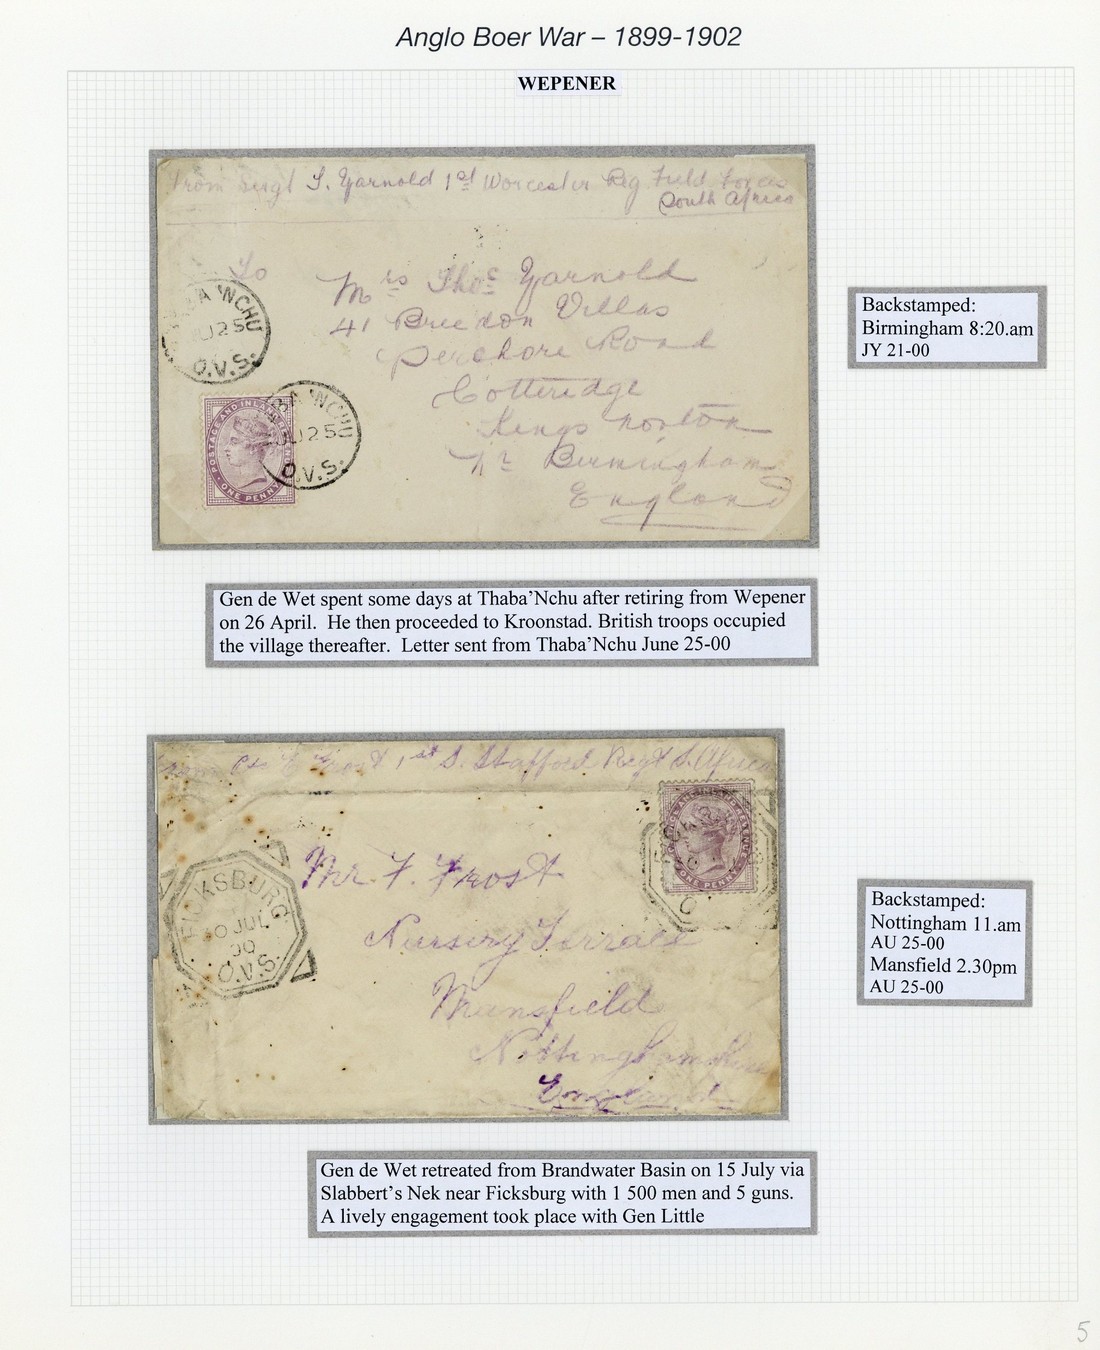 Anglo Boer War – 1899-1902
WEPENER
From Sergt T. Yarnold 1st Worcester Reg Field Forces
South Africa
To
Mrs Thos Yarnold
41 Breedon Villas
Pershore Road
Cotteridge
Kings norton
Nr Birmingham
England
BA'NCHU
U25
O.V.S.
BA'NCHU
JU25
O.V.S.
POSTAGE AND INLAND
ONE PENNY
Backstamped:
Birmingham 8:20.am
JY 21-00
Gen de Wet spent some days at Thaba’Nchu after retiring from Wepener
on 26 April. He then proceeded to Kroonstad. British troops occupied
the village thereafter. Letter sent from Thaba’Nchu June 25-00
From Pte E Frost 1st S. Stafford Regt S. Africa
Mr. F. Frost
Nursery Terrace
Mansfield
Nottinghamshire
England
FICKSBURG
0 JUL
00
O.V.S.
ONE PENNY
Backstamped:
Nottingham 11.am
AU 25-00
Mansfield 2.30pm
AU 25-00
Gen de Wet retreated from Brandwater Basin on 15 July via
Slabbert’s Nek near Ficksburg with 1 500 men and 5 guns.
A lively engagement took place with Gen Little
5